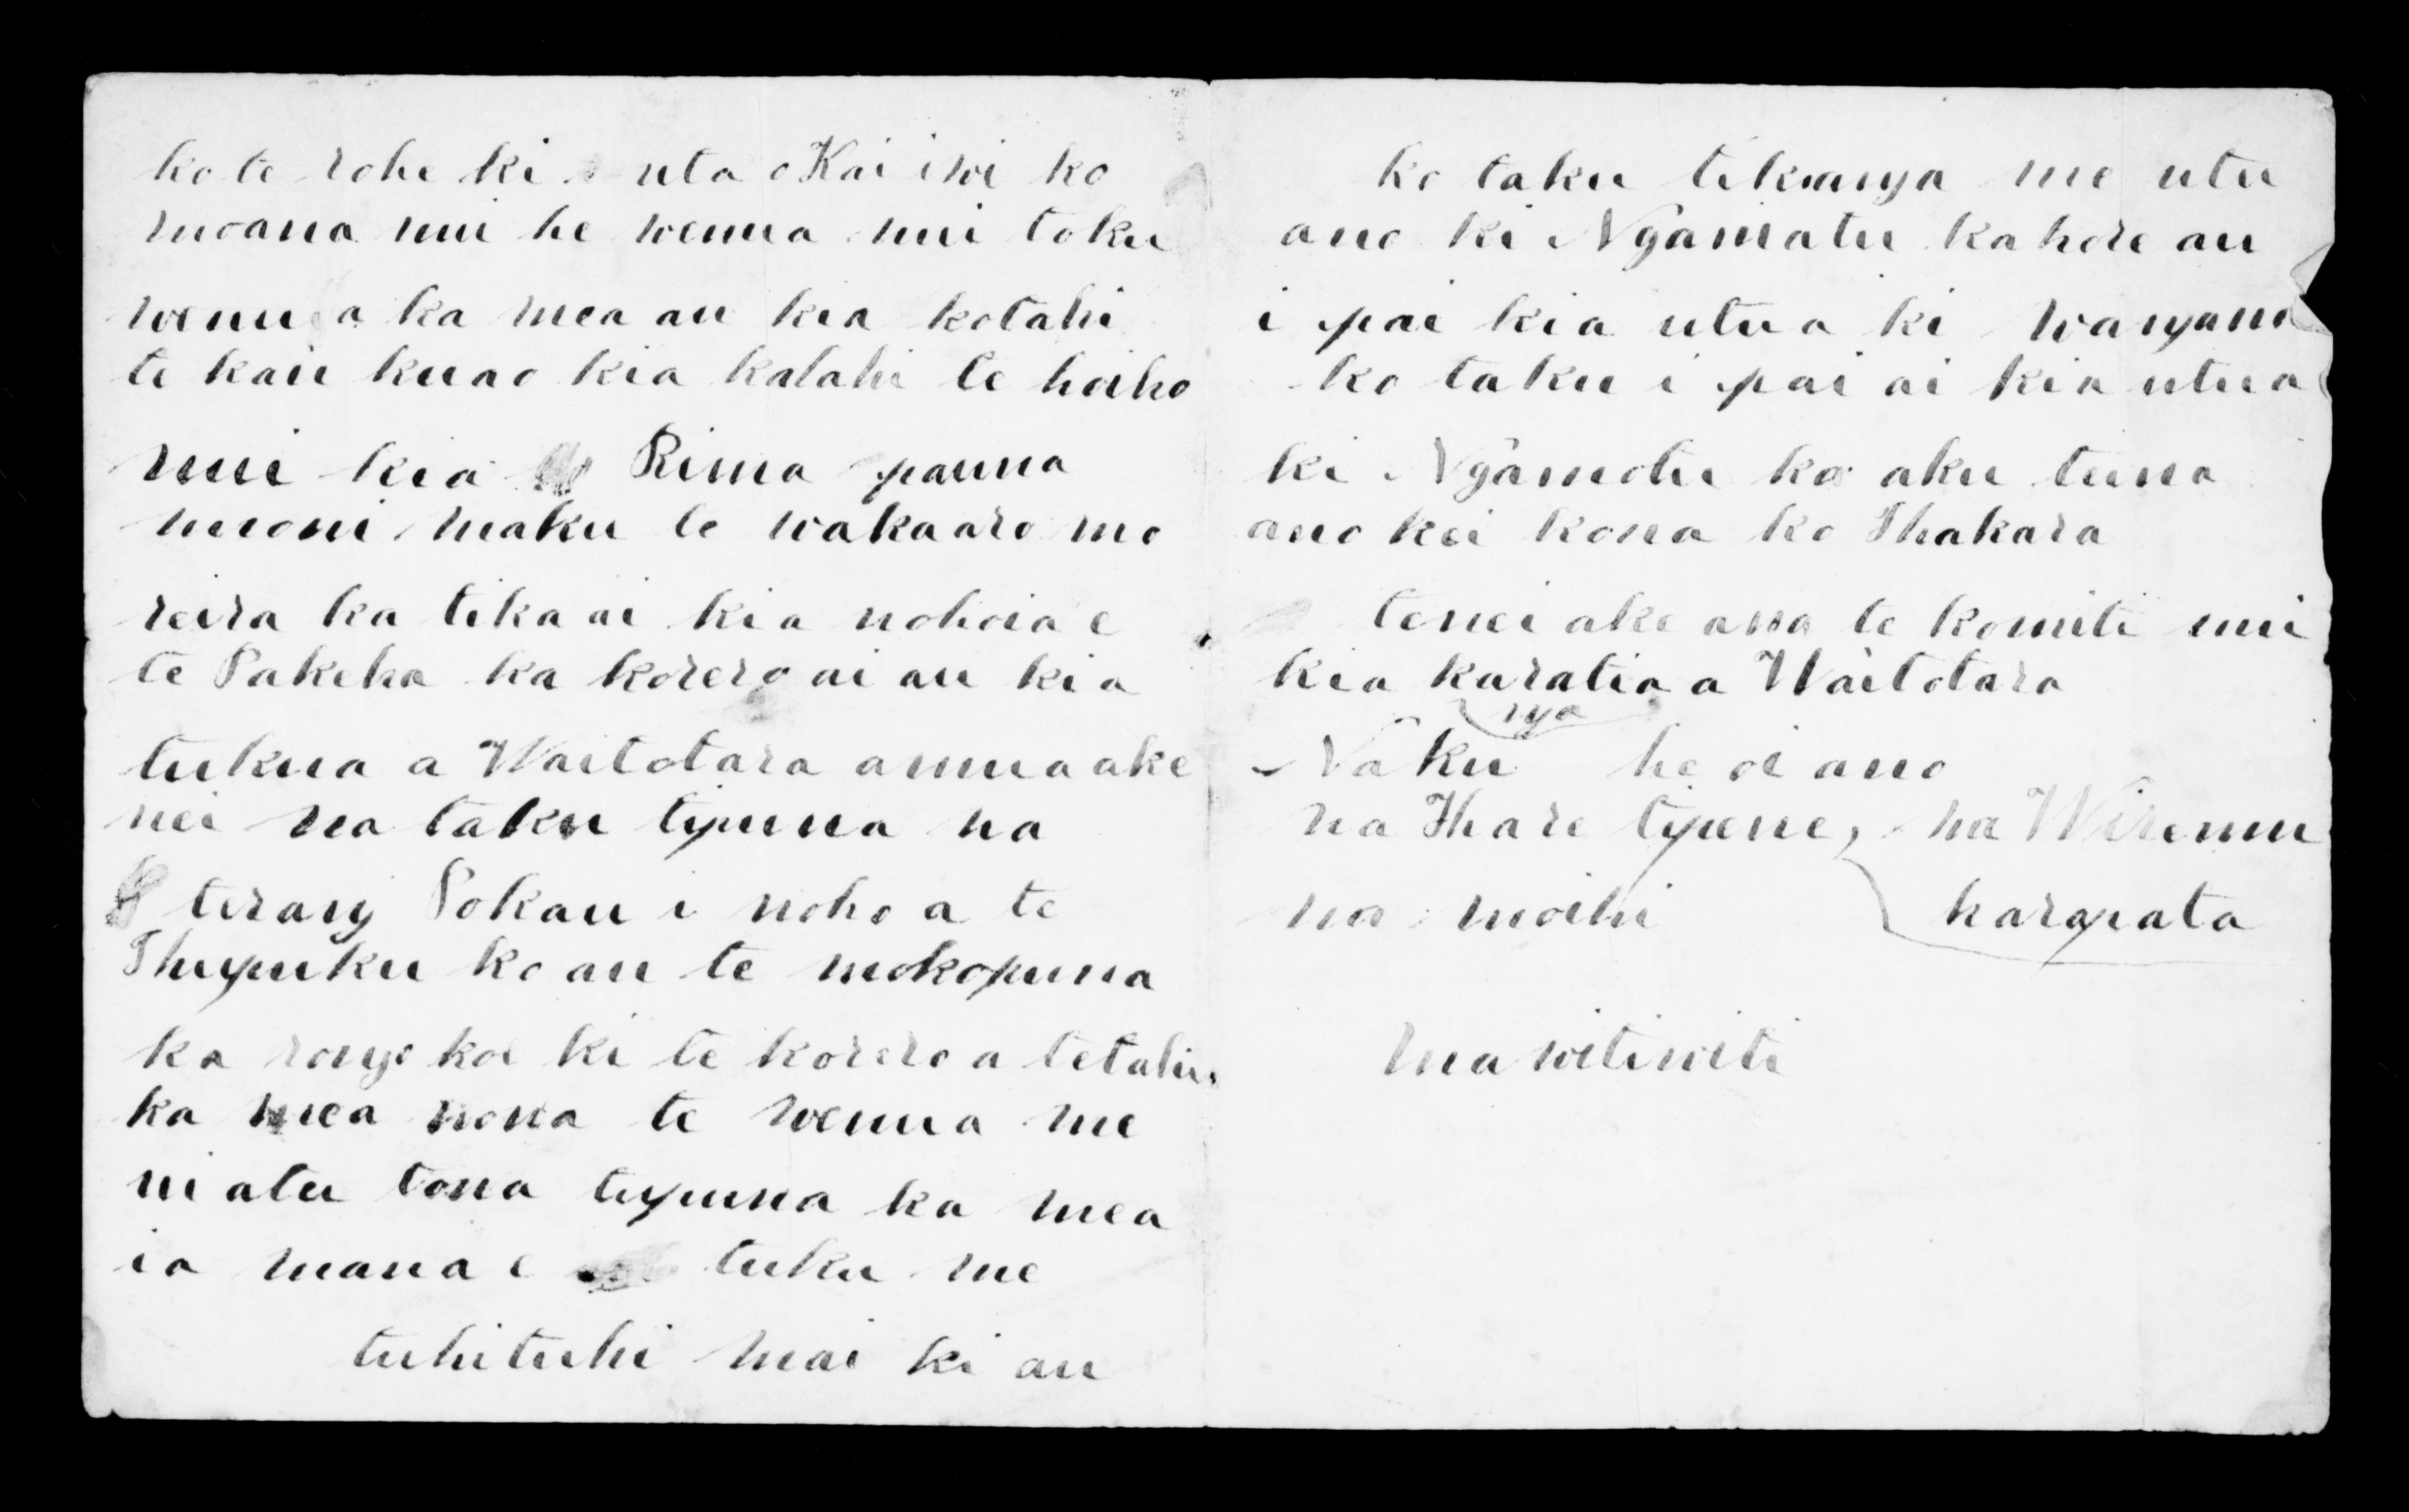 ko te rohe ki uta o Kai iwi ko
moana nui he wenua nui toku
wenua ka mea au kia kotahi
te kau kuao kia kalahi te hoiho
nui kia Rima pauna
moni maku te wakaaro mo
reira ka tika ai kia nohoia e
te Pakeha ka korero ai au kia
tukua a Waitotara amua ake
nei na taku tipuna na
terangi Pokau i noho a te
Ihupuku ko au te mokopuna
ka rongo koe ki te korero a tetahi
ka mea nona te wenua me
ui atu tona tupuna ka mea
ia mana e tuku me
tuhituhi mai ki au
ko taku tikanga me utu
ano ki Ngamatu kahore au
i pai kia utua ki wanganui
ko taku i pai ai kia utua
ki Ngamotu ko aku tuna
ano kei kona ko Ihakara
tenei ake ano te komiti nui
kia karatia a Waitotara
nga
Na ku he oi ano
na Ihare tipene, na Wiremu
na moihi karapata
ma witiwiti